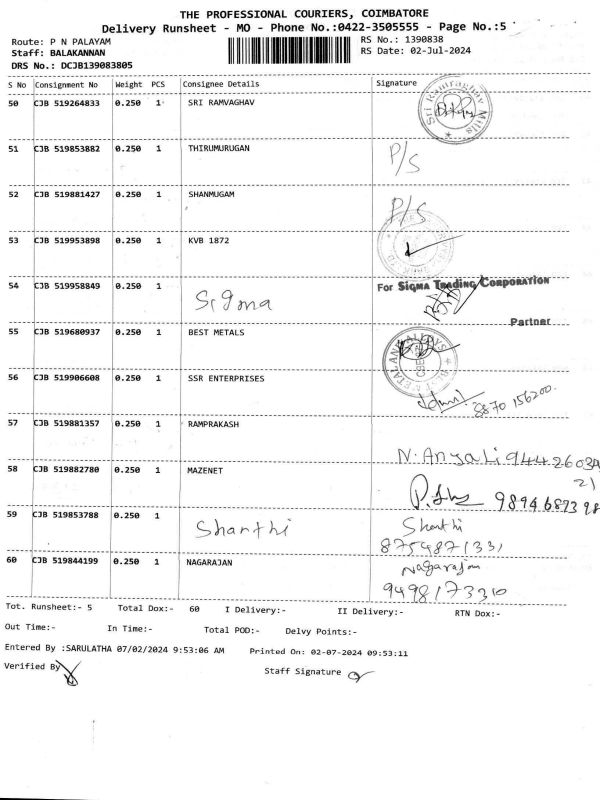 THE PROFESSIONAL COURIERS, COIMBATORE
Delivery Runsheet - MO - Phone No.:0422-3505555 - Page No.:5
Route: P N PALAYAM
RS No.: 1390838
Staff: BALAKANNAN
RS Date: 02-Jul-2024
DRS No.: DCJB139083805
S No Consignment No Weight PCS Consignee Details Signature
50 CJB 519264833 0.250 1 SRI RAMVAGHAV
Sri Ramraghav Mills
51 CJB 519853882 0.250 1 THIRUMURUGAN P/S
52 CJB 519881427 0.250 1 SHANMUGAM P/S
53 CJB 519953898 0.250 1 KVB 1872
54 CJB 519958849 0.250 1 Sigma For SIGMA TRADING CORPORATION
Partner
55 CJB 519680937 0.250 1 BEST METALS
BEST METAL AND ALLOYS
56 CJB 519906608 0.250 1 SSR ENTERPRISES 8870 156200.
57 CJB 519881357 0.250 1 RAMPRAKASH N. Anjali 9442603421
58 CJB 519882780 0.250 1 MAZENET 9894687398
59 CJB 519853788 0.250 1 Shanthi Shanthi
8754871331
60 CJB 519844199 0.250 1 NAGARAJAN Nagarajan
9498173310
Tot. Runsheet:- 5 Total Dox:- 60 I Delivery:- II Delivery:- RTN Dox:-
Out Time:- In Time:- Total POD:- Delvy Points:-
Entered By :SARULATHA 07/02/2024 9:53:06 AM Printed On: 02-07-2024 09:53:11
Verified By
Staff Signature